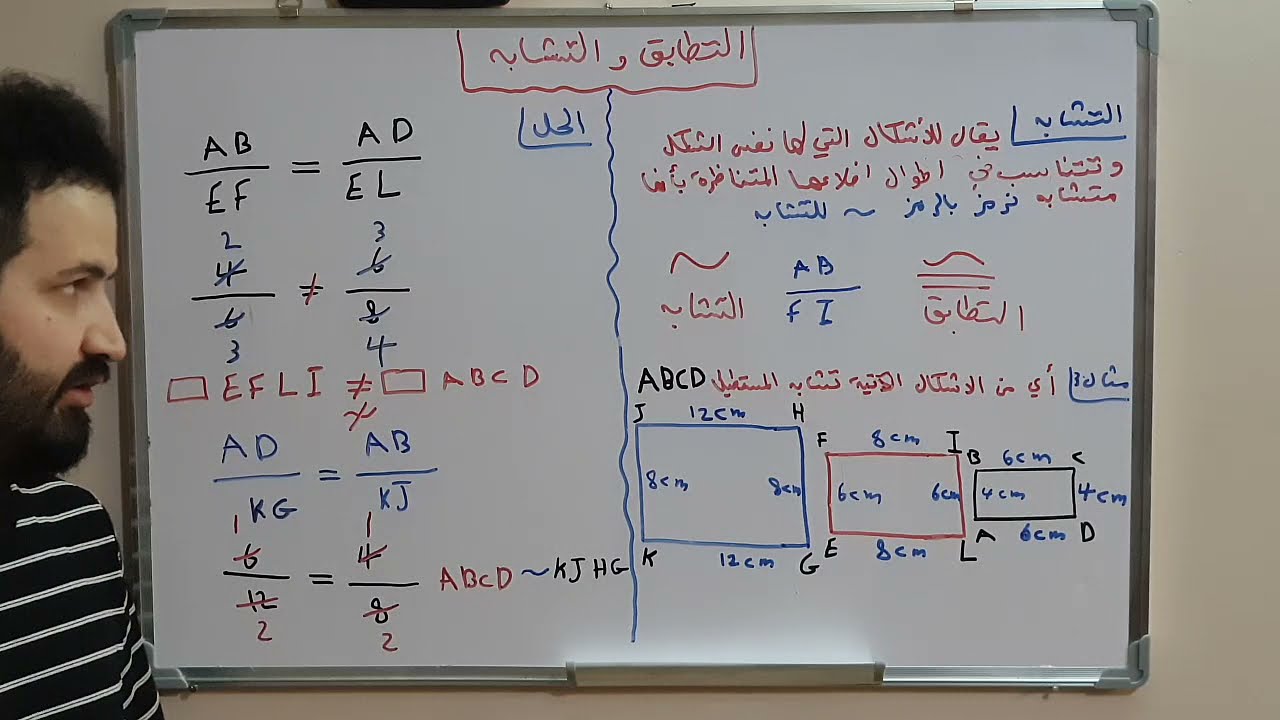 التطابق و التشابه
التشابه
يقال للأشكال التي لها نفس الشكل
و تتناسب في أطوال اضلاعها المتناظرة بأنها
متشابه نرمز بالرمز ~ للتشابه
~ AB/FI ≅
التشابه التطابق
مثال3 أي من الاشكال الآتية تشابه المستطيل ABCD
J 12cm H
8cm 8cm
K 12cm G
F 8cm I
6cm 6cm
E 8cm L
B 6cm C
4cm 4cm
A 6cm D
الحل
AB/EF = AD/EL
2 3
4/6 ≠ 6/8
3 4
▭ EFLI ≠ ▭ ABCD
≁
AD/KG = AB/KJ
1 1
6/12 = 4/8 ABCD ~ KJHG
2 2